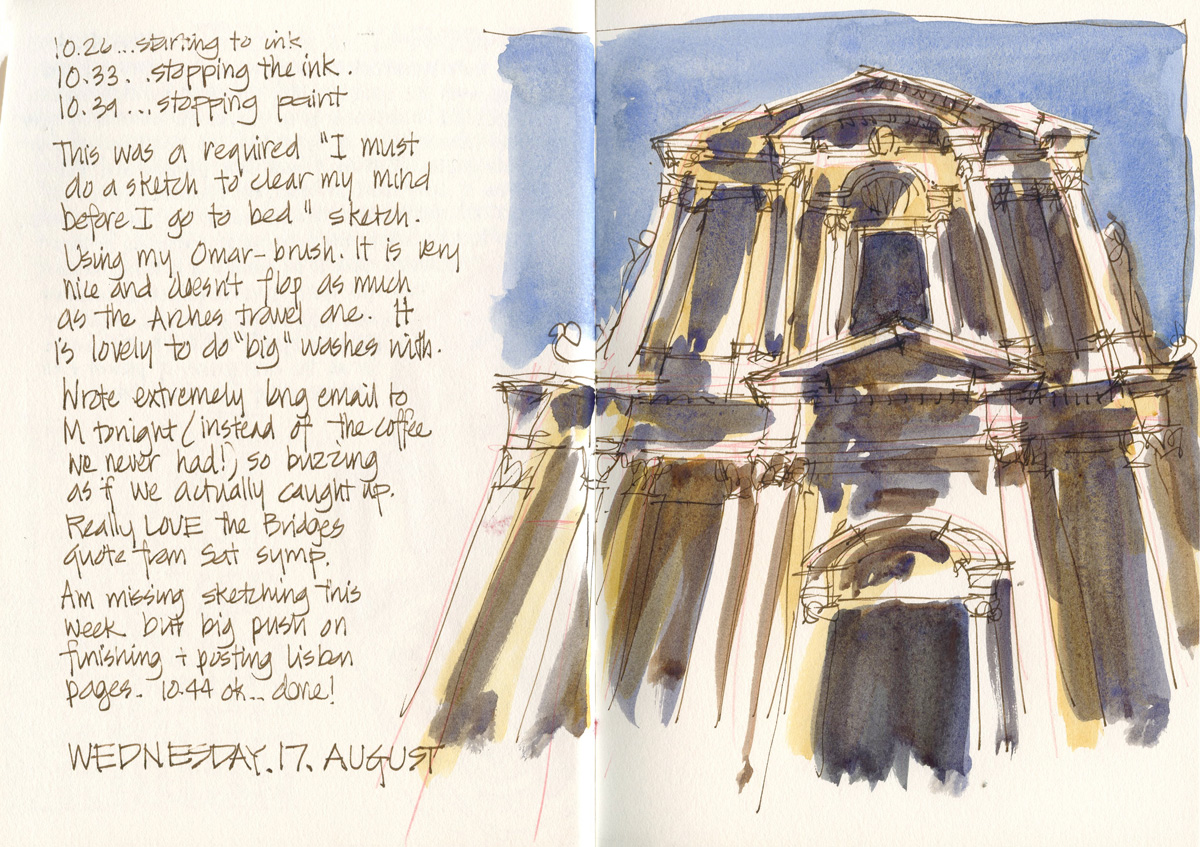 10.26...starting to ink
10.33...stopping the ink.
10.39...stopping paint
This was a required "I must
do a sketch to clear my mind
before I go to bed" sketch.
Using my Omar-brush. It is very
nice and doesn't flop as much
as the Arches travel one. It
is lovely to do "big" washes with.
Wrote extremely long email to
M tonight (instead of the coffee
we never had!) so buzzing
as if we actually caught up.
Really LOVE the Bridges
quote from Sat symp.
Am missing sketching this
week but big push on
finishing + posting Lisbon
pages. 10.44 ok... done!
WEDNESDAY.17. AUGUST